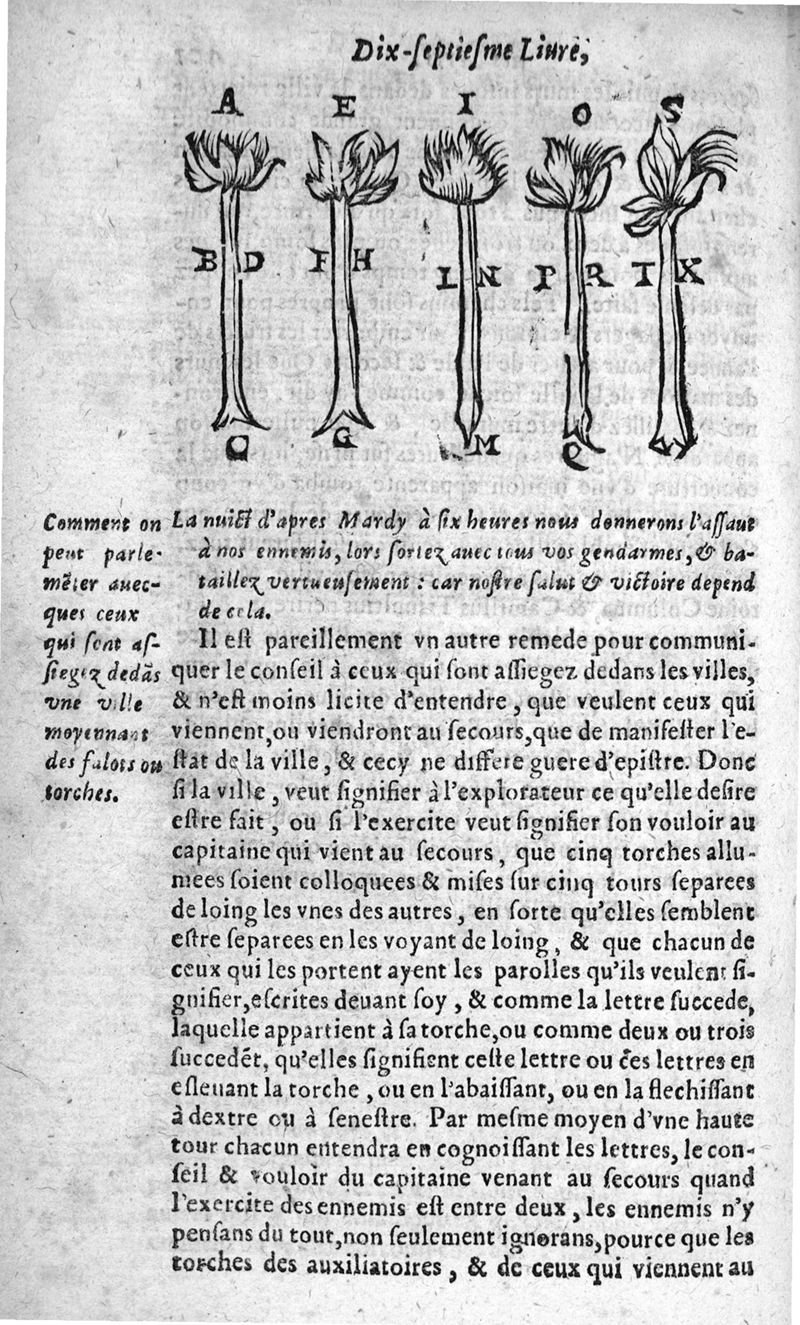 Dix-ſeptieſme Liure,
A E I O S
B D F H L N P R T X
C G M Q
Comment on
peut parle-
mẽter auec-
ques ceux
qui ſont aſ-
ſiegez dedãs
vne ville
moyennant
des falots ou
torches.
La nuict d'apres Mardy à ſix heures nous donnerons l'aſſaut
à nos ennemis, lors ſortez auec tous vos gendarmes, & ba-
taillez vertueuſement : car noſtre ſalut & victoire depend
de cela.
Il eſt pareillement vn autre remede pour communi-
quer le conſeil à ceux qui ſont aſſiegez dedans les villes,
& n'eſt moins licite d'entendre, que veulent ceux qui
viennent, ou viendront au ſecours, que de manifeſter l'e-
ſtat de la ville, & cecy ne differe guere d'epiſtre. Donc
ſi la ville, veut ſignifier à l'explorateur ce qu'elle deſire
eſtre fait, ou ſi l'exercite veut ſignifier ſon vouloir au
capitaine qui vient au ſecours, que cinq torches allu-
mees ſoient colloquees & miſes ſur cinq tours ſeparees
de loing les vnes des autres, en ſorte qu'elles ſemblent
eſtre ſeparees en les voyant de loing, & que chacun de
ceux qui les portent ayent les parolles qu'ils veulent ſi-
gnifier, eſcrites deuant ſoy, & comme la lettre ſuccede,
laquelle appartient à ſa torche, ou comme deux ou trois
ſuccedẽt, qu'elles ſignifient ceſte lettre ou ces lettres en
eſleuant la torche, ou en l'abaiſſant, ou en la flechiſſant
à dextre ou à ſeneſtre. Par meſme moyen d'vne haute
tour chacun entendra en cognoiſſant les lettres, le con-
ſeil & vouloir du capitaine venant au ſecours quand
l'exercite des ennemis eſt entre deux, les ennemis n'y
penſans du tout, non ſeulement ignorans, pource que les
torches des auxiliatoires, & de ceux qui viennent au